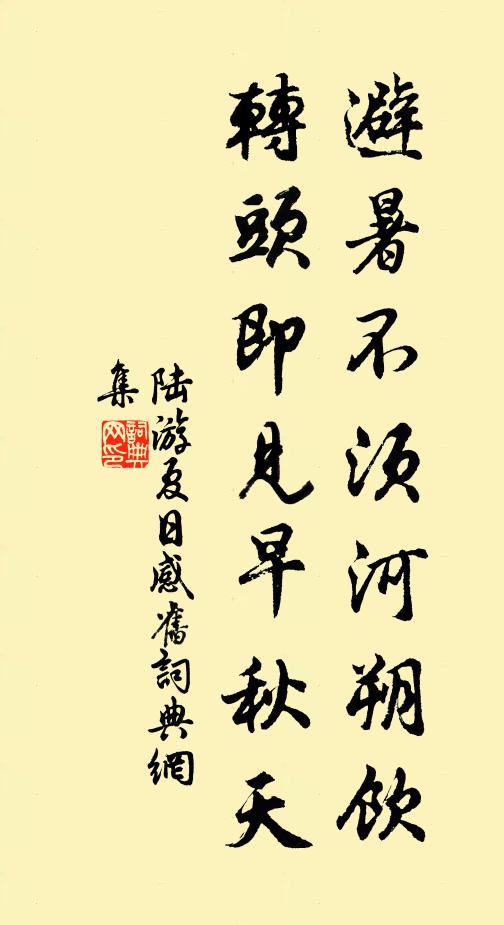 避暑不須河朔飲
轉頭即見早秋天
陸游夏日感舊詞典網
集
詞典网印